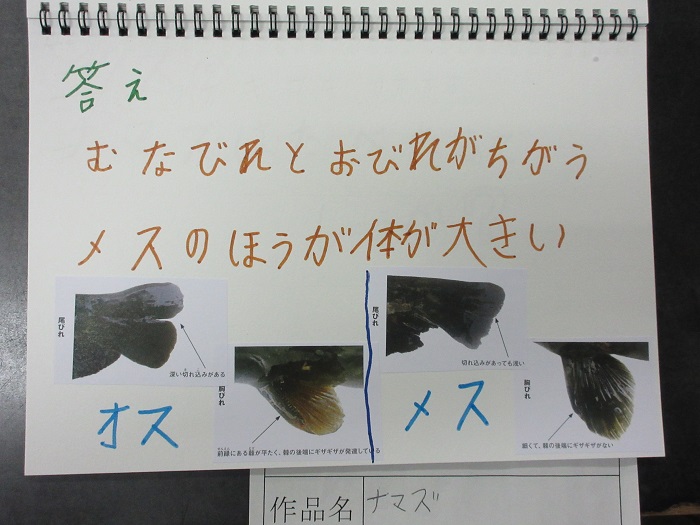 答え
むなびれとおびれがちがう
メスのほうが体が大きい
尾びれ
深い切れ込みがある
胸びれ
前縁にある棘が平たく、棘の後端にギザギザが発達している
オス
尾びれ
切れ込みがあっても浅い
胸びれ
細くて、棘の後端にギザギザがない
メス
作品名 ナマズ